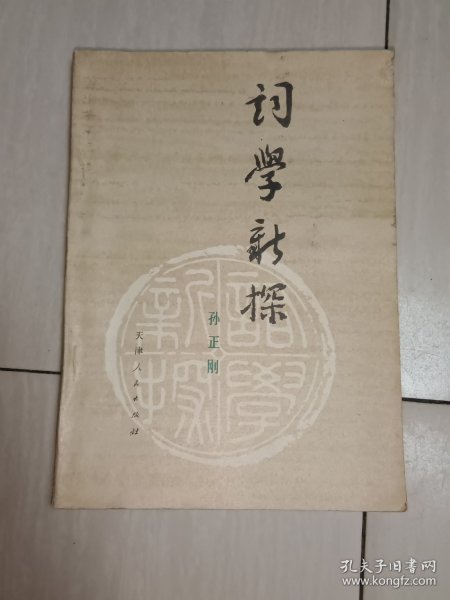 词學新探
孙正刚
天津人民出版社
詞學
新探
孔夫子旧书网
www.kongfz.com